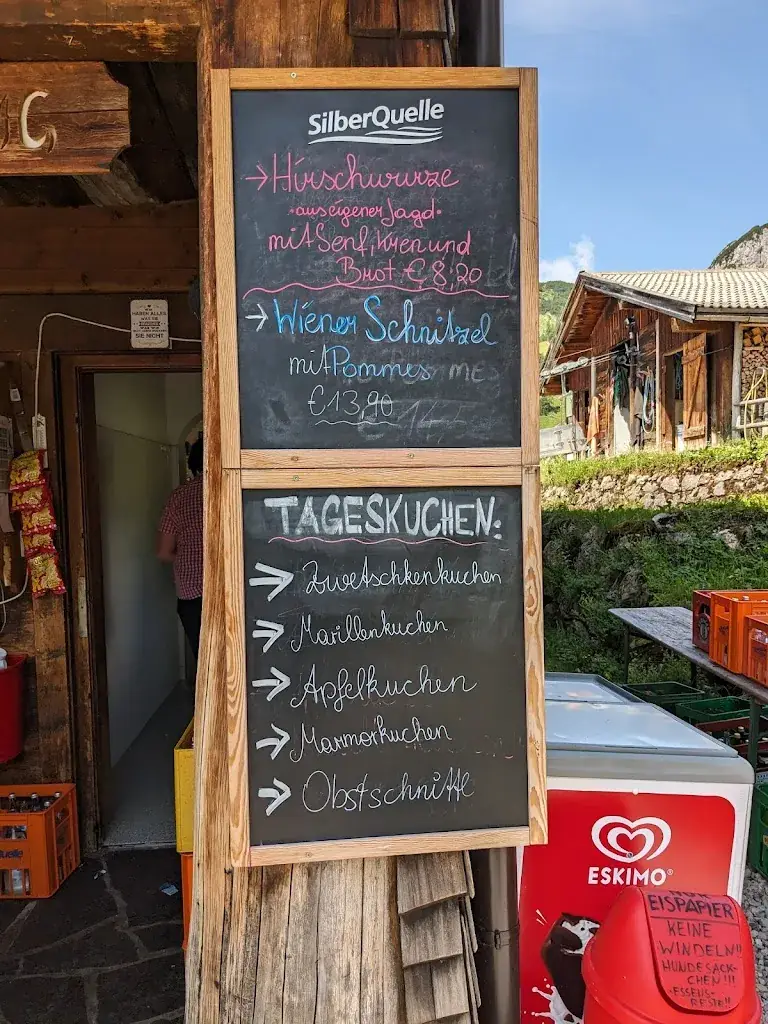 SilberQuelle
→Hirschwurze
·aus eigener Jagd·
mit Senf, Kren und
Brot € 8,20
→ Wiener Schnitzel
mit Pommes
€13,90
TAGESKUCHEN:
→ Zwetschkenkuchen
→ Marillenkuchen
→ Apfelkuchen
→ Marmorkuchen
→ Obstschnitte
WIR
HABEN ALLES
SIE NICHT
ESKIMO®
NUR
EISPAPIER
KEINE
WINDELN!!
HUNDESACK-
CHEN!!!
-ESSENS-
RESTE!!